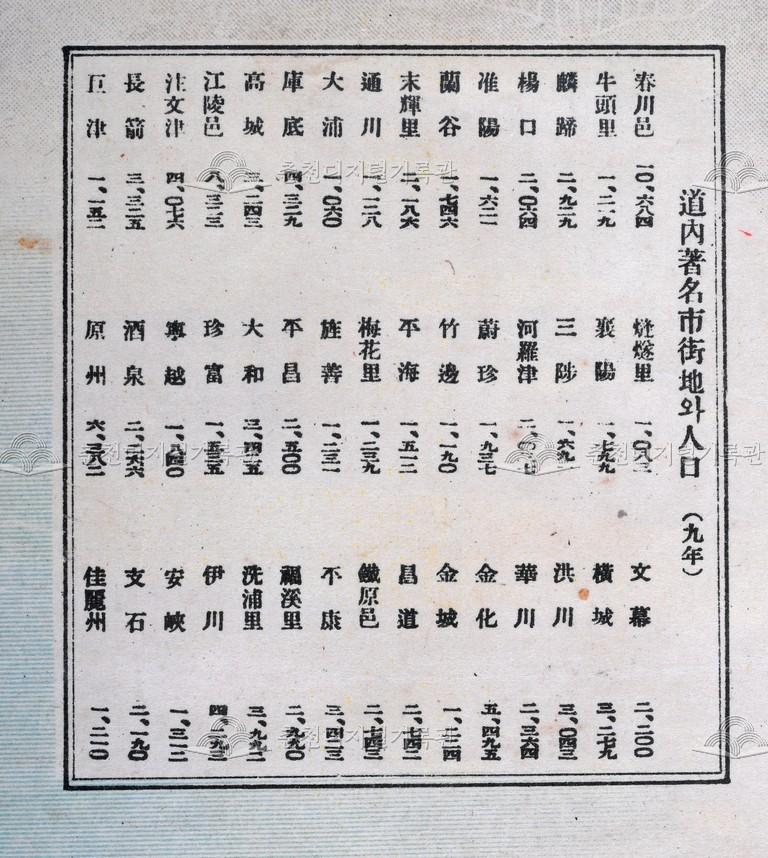 道內著名市街地와人口 (九年)
春川邑 一〇、六八四
牛頭里 一、二一九
麟蹄 二、九二九
楊口 二、〇六四
淮陽 一、六二一
蘭谷 一、七四六
末輝里 二、一八六
通川 一、一二八
大浦 一、〇六〇
庫底 四、三二九
高城 三、二四三
江陵邑 八、三二三
注文津 四、〇七六
長箭 三、三二五
巨津 一、一五二
烽燧里 一、〇八二
襄陽 一、七九九
三陟 一、六九一
河羅津
蔚珍 一、九三七
竹邊 一、一九〇
平海 一、五一二
梅花里 一、二三九
旌善 一、二三一
平昌 二、五〇〇
大和 三、四四五
珍富 一、五三五
寧越 一、八四〇
酒泉 二、二六六
原州 六、三八二
文幕 二、二〇〇
橫城 三、二七九
洪川 三、〇四三
華川 二、三六四
金化 五、四九五
金城 一、二二四
昌道 二、七四二
鐵原邑 二、七四三
不康 三、四二三
福溪里 二、九九〇
洗浦里 三、九九二
伊川 四、二九三
安峽 一、三一二
支石 二、一九〇
佳麗州 一、二一〇
춘천디지털기록관